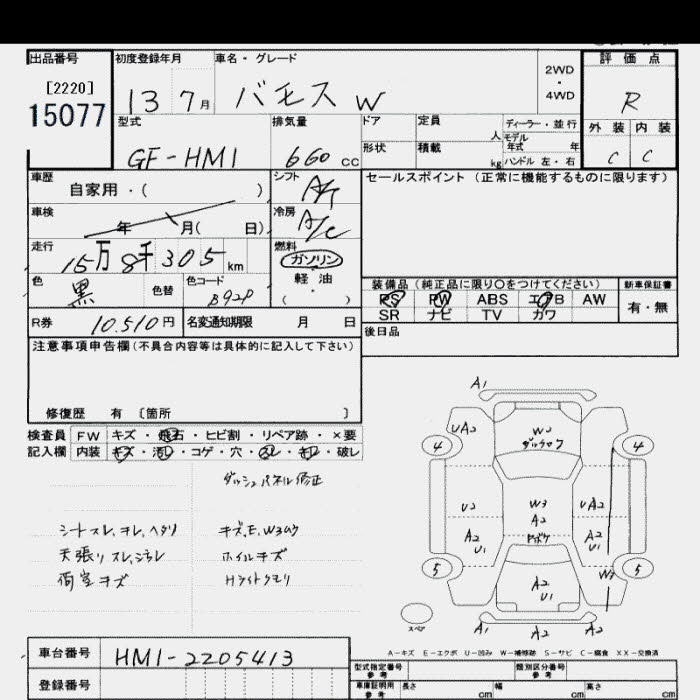 出品番号
[2220]
15077
初度登録年月
13 7月
車名・グレード
バモス W
2WD
・
4WD
評価点
R
外装 内装
C C
型式
GF-HM1
排気量
660 cc
ドア
定員 人
ディーラー・並行
モデル
年式 年
形状
積載 kg
ハンドル 左・右
車歴
自家用・( )
シフト
A/T
セールスポイント (正常に機能するものに限ります)
車検
年 月( 日)
冷房
A/C
走行
15万8千305km
燃料
ガソリン
・
軽油
( )
色
黒
色替
色コード
B92P
装備品 (純正品に限り○をつけてください)
新車保証書
PS PW ABS エアB AW
有・無
SR ナビ TV カワ
R券
10,510円
名変通知期限 月 日
後日品
注意事項申告欄 (不具合内容等は具体的に記入して下さい)
修復歴 有 〔箇所 〕
検査員 FW キズ・飛石・ヒビ割・リペア跡・×要
記入欄 内装 キズ・汚レ・コゲ・穴・スレ・キレ・破レ
ダッシュパネル修正
シートスレ、キレ、ヘタリ
キズ、E、W3ムラ
天張リスレ、シミレ
ホイルキズ
荷室キズ
Hライトクモリ
A1
UA2
W2
4
4
U2
W3
A2
UA2
A2
U1
A2
U1
5
5
A2
U1
W2
スペア
A1
A2
A2
A-キズ E-エクボ U-凹み W-補修跡 S-サビ C-腐食 XX-交換済
車台番号
HM1-2205413
登録番号
型式指定番号
参考
類別区分番号
参考
車庫証明用
参考
長さ cm
幅 cm
高さ cm